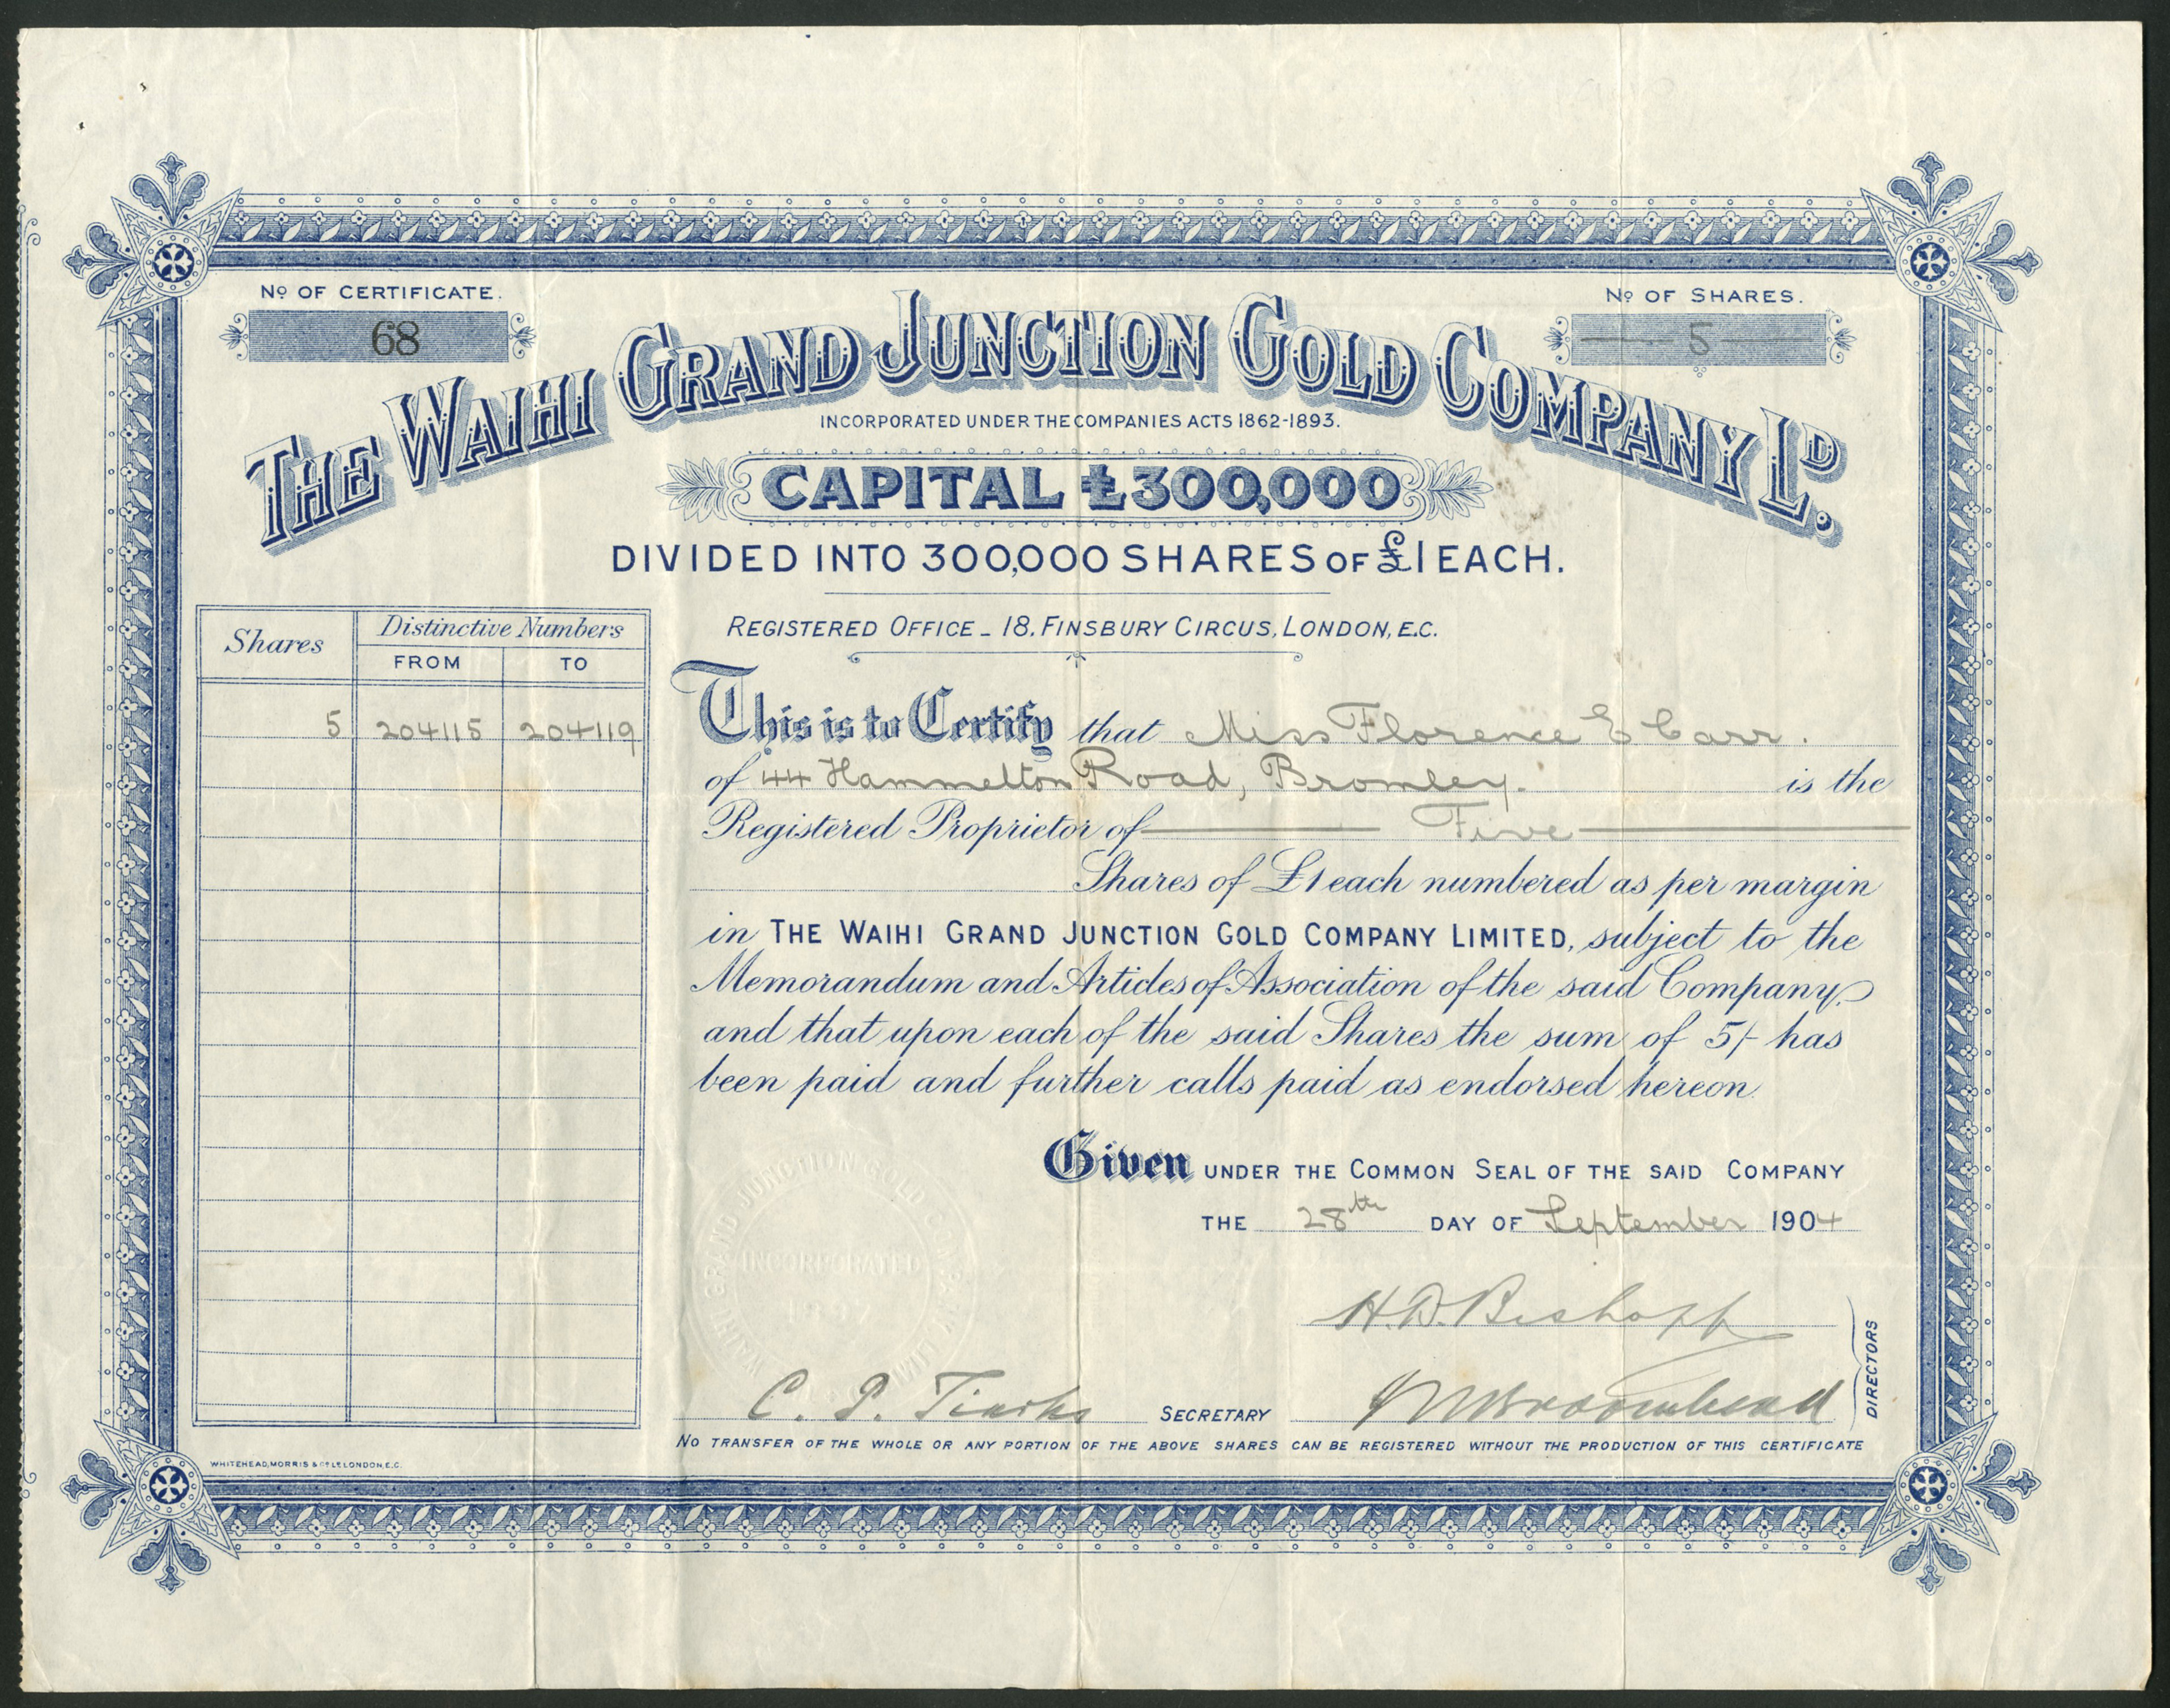 No OF CERTIFICATE.
68
No OF SHARES.
5
THE WAIHI GRAND JUNCTION GOLD COMPANY LD.
INCORPORATED UNDER THE COMPANIES ACTS 1862-1893.
CAPITAL £300,000
DIVIDED INTO 300,000 SHARES OF £1 EACH.
REGISTERED OFFICE _ 18, FINSBURY CIRCUS, LONDON, E.C.
Shares Distinctive Numbers
FROM TO
5 204115 204119
This is to Certify that Miss Florence E Carr.
of 44 Hammelton Road, Bromley. is the
Registered Proprietor of Five
Shares of £1 each numbered as per margin
in THE WAIHI GRAND JUNCTION GOLD COMPANY LIMITED, subject to the
Memorandum and Articles of Association of the said Company,
and that upon each of the said Shares the sum of 5/- has
been paid and further calls paid as endorsed hereon.
Given UNDER THE COMMON SEAL OF THE SAID COMPANY
THE 28th DAY OF September 1904
WAIHI GRAND JUNCTION GOLD COMPANY LIMITED
INCORPORATED
H. D. Bishopp
DIRECTORS
C. P. SECRETARY Broomhead
NO TRANSFER OF THE WHOLE OR ANY PORTION OF THE ABOVE SHARES CAN BE REGISTERED WITHOUT THE PRODUCTION OF THIS CERTIFICATE
WHITEHEAD, MORRIS & Co LD LONDON, E.C.